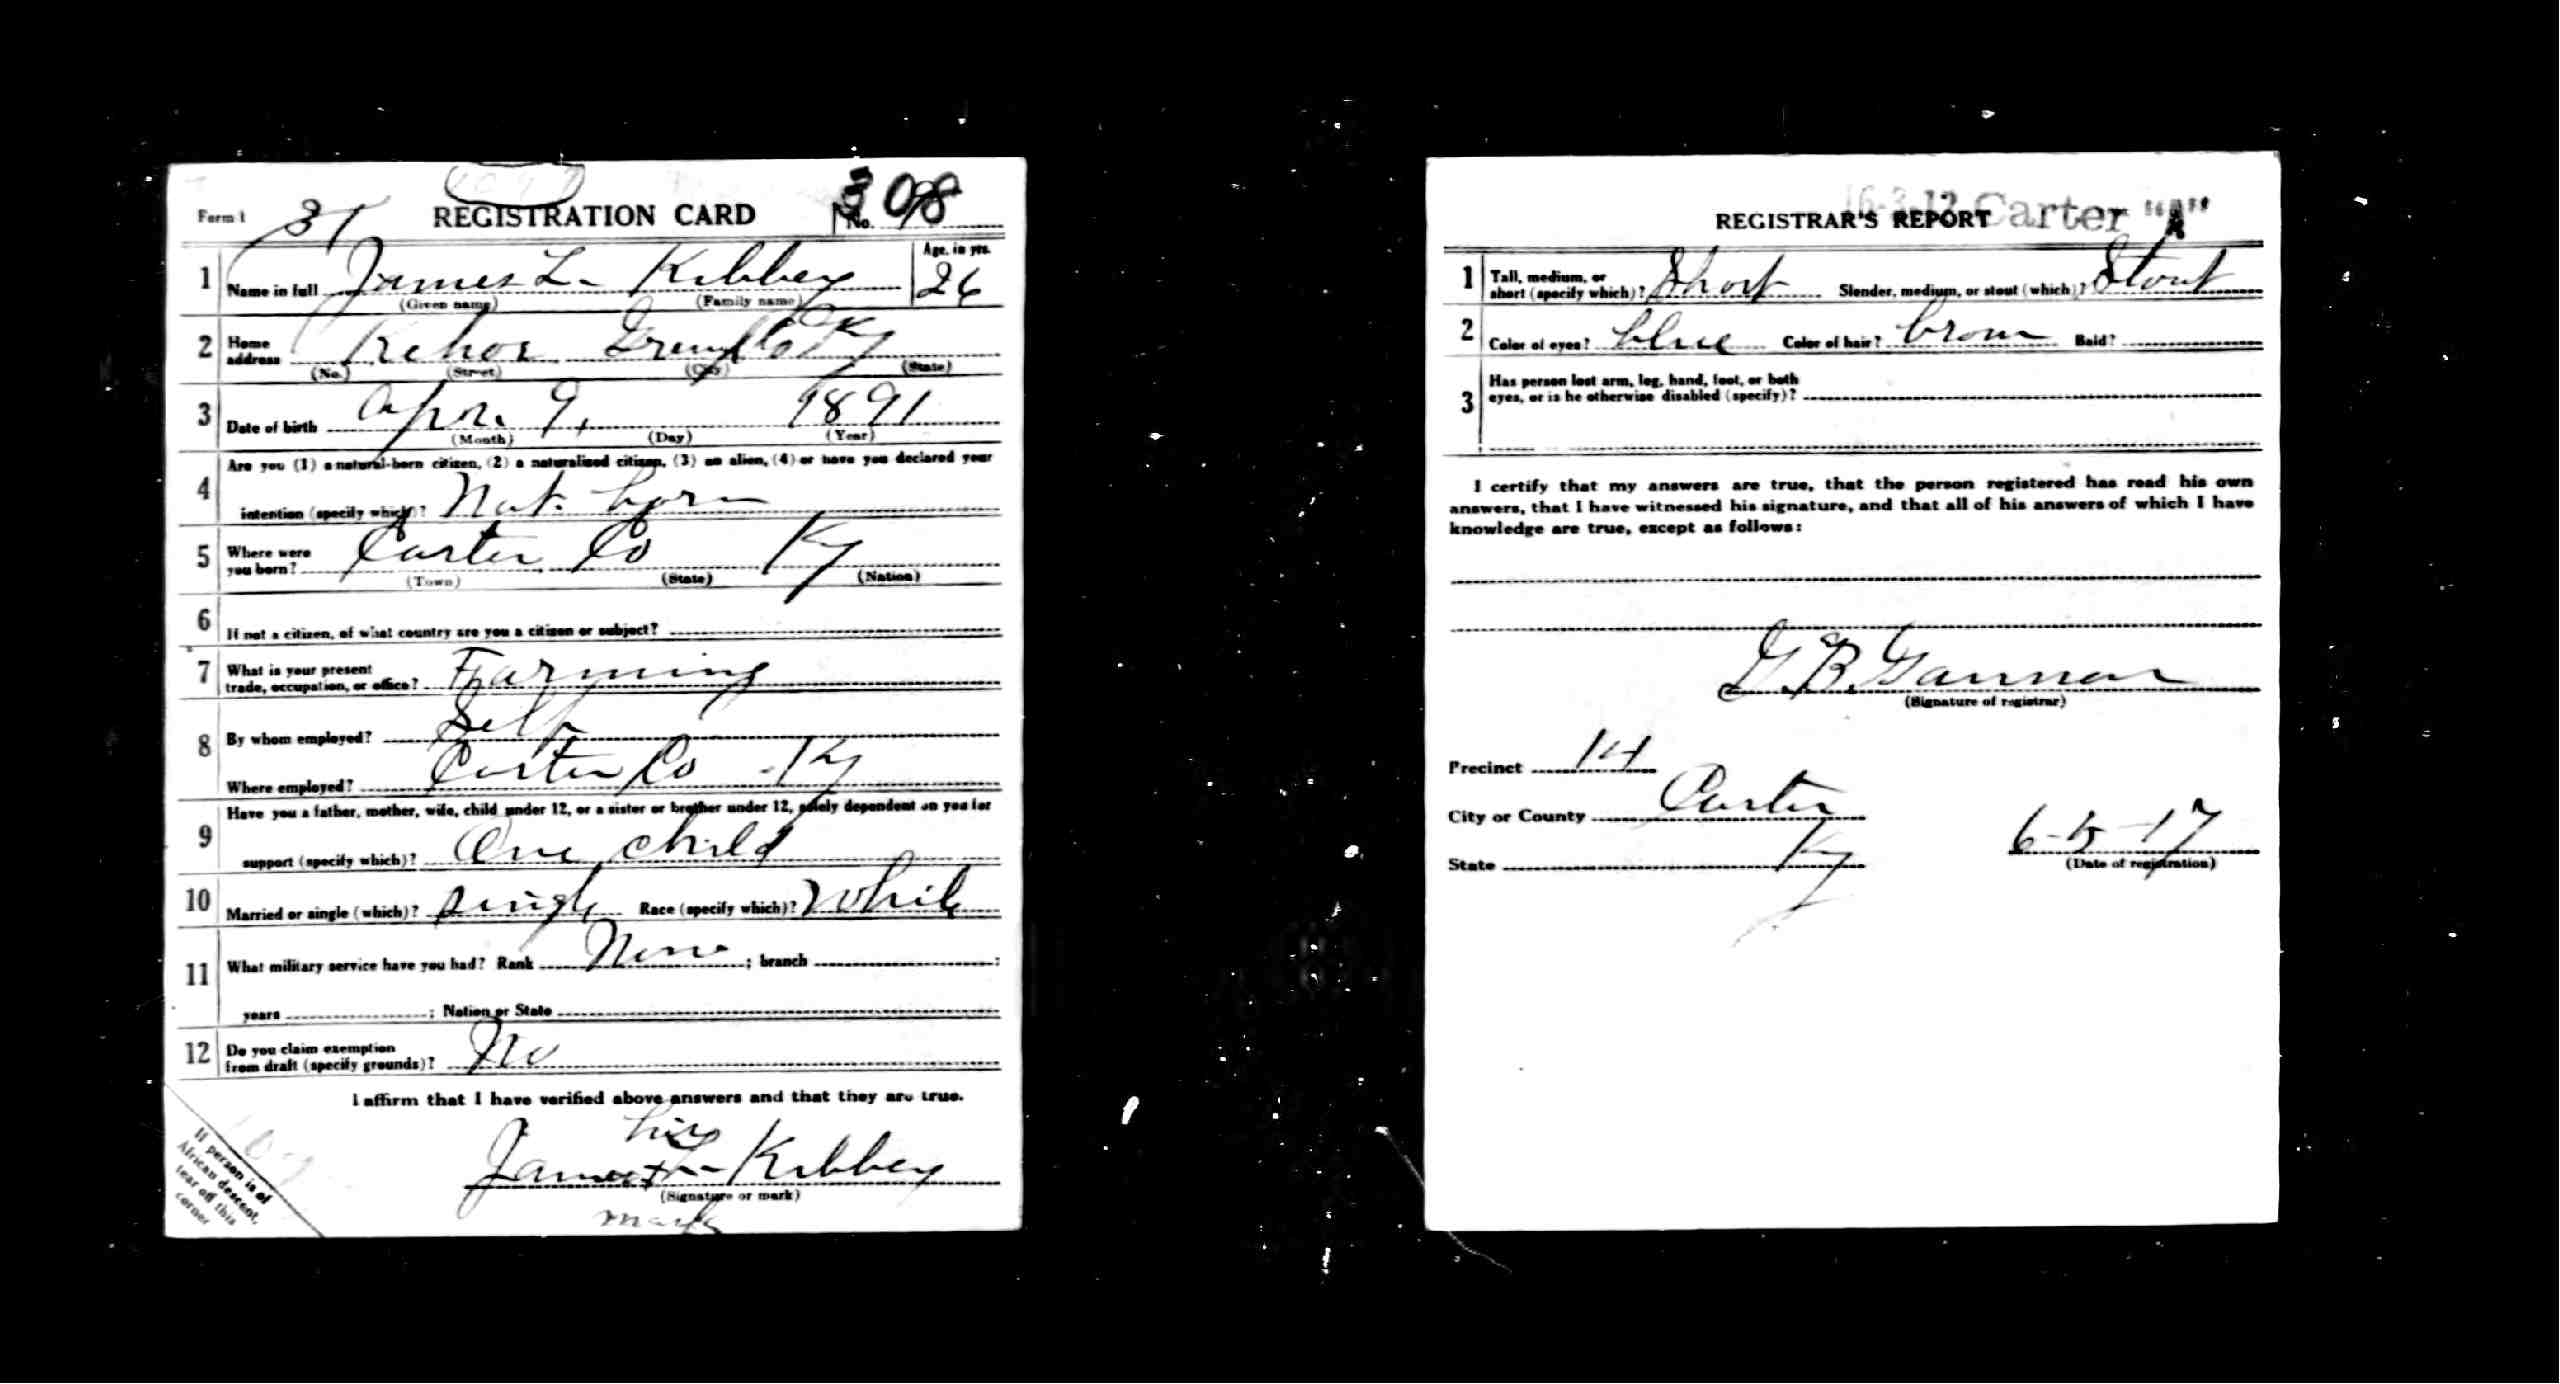 Form 1 31 REGISTRATION CARD No. 98
308
1 Name in full James L. Kibbey Age, in yrs. 26
(Given name) (Family name)
2 Home address Kehoe Ky
(No.) (Street) (City) (State)
3 Date of birth Apr. 9, 1891
(Month) (Day) (Year)
4 Are you (1) a natural-born citizen, (2) a naturalized citizen, (3) an alien, (4) or have you declared your
intention (specify which)? Nat. born
5 Where were you born? Carter Co Ky
(Town) (State) (Nation)
6 If not a citizen, of what country are you a citizen or subject?
7 What is your present
trade, occupation, or office? Farming
8 By whom employed? Self
Where employed? Carter Co Ky
9 Have you a father, mother, wife, child under 12, or a sister or brother under 12, solely dependent on you for
support (specify which)? One child
10 Married or single (which)? single Race (specify which)? White
11 What military service have you had? Rank None ; branch ;
years ; Nation or State
12 Do you claim exemption
from draft (specify grounds)? No
I affirm that I have verified above answers and that they are true.
his
James L. x Kibbey
(Signature or mark)
mark
If person is of
African descent,
tear off this
corner
16-3-12 Carter "A"
REGISTRAR'S REPORT
1 Tall, medium, or
short (specify which)? Short Slender, medium, or stout (which)? Stout
2 Color of eyes? blue Color of hair? brown Bald?
3 Has person lost arm, leg, hand, foot, or both
eyes, or is he otherwise disabled (specify)?
I certify that my answers are true, that the person registered has read his own
answers, that I have witnessed his signature, and that all of his answers of which I have
knowledge are true, except as follows:
G. B. Gannon
(Signature of registrar)
Precinct 14
City or County Carter
State Ky 6-5-17
(Date of registration)